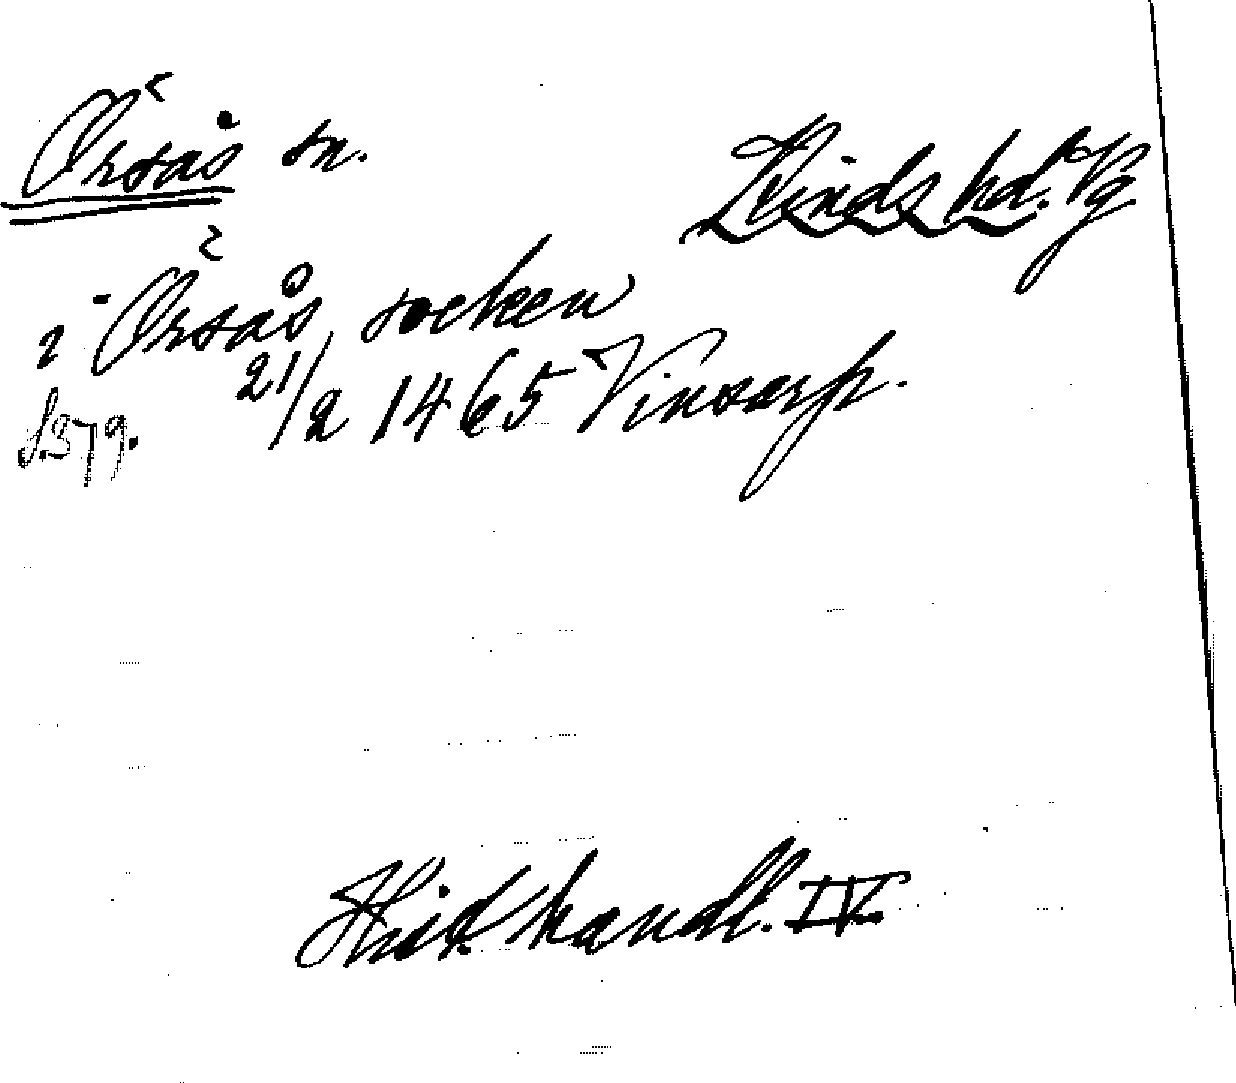 Örsås sn. Kinds hd. Vg
i Örsås socken
S. 379. 21/2 1465 Vinsarp.
Hist. handl. IV